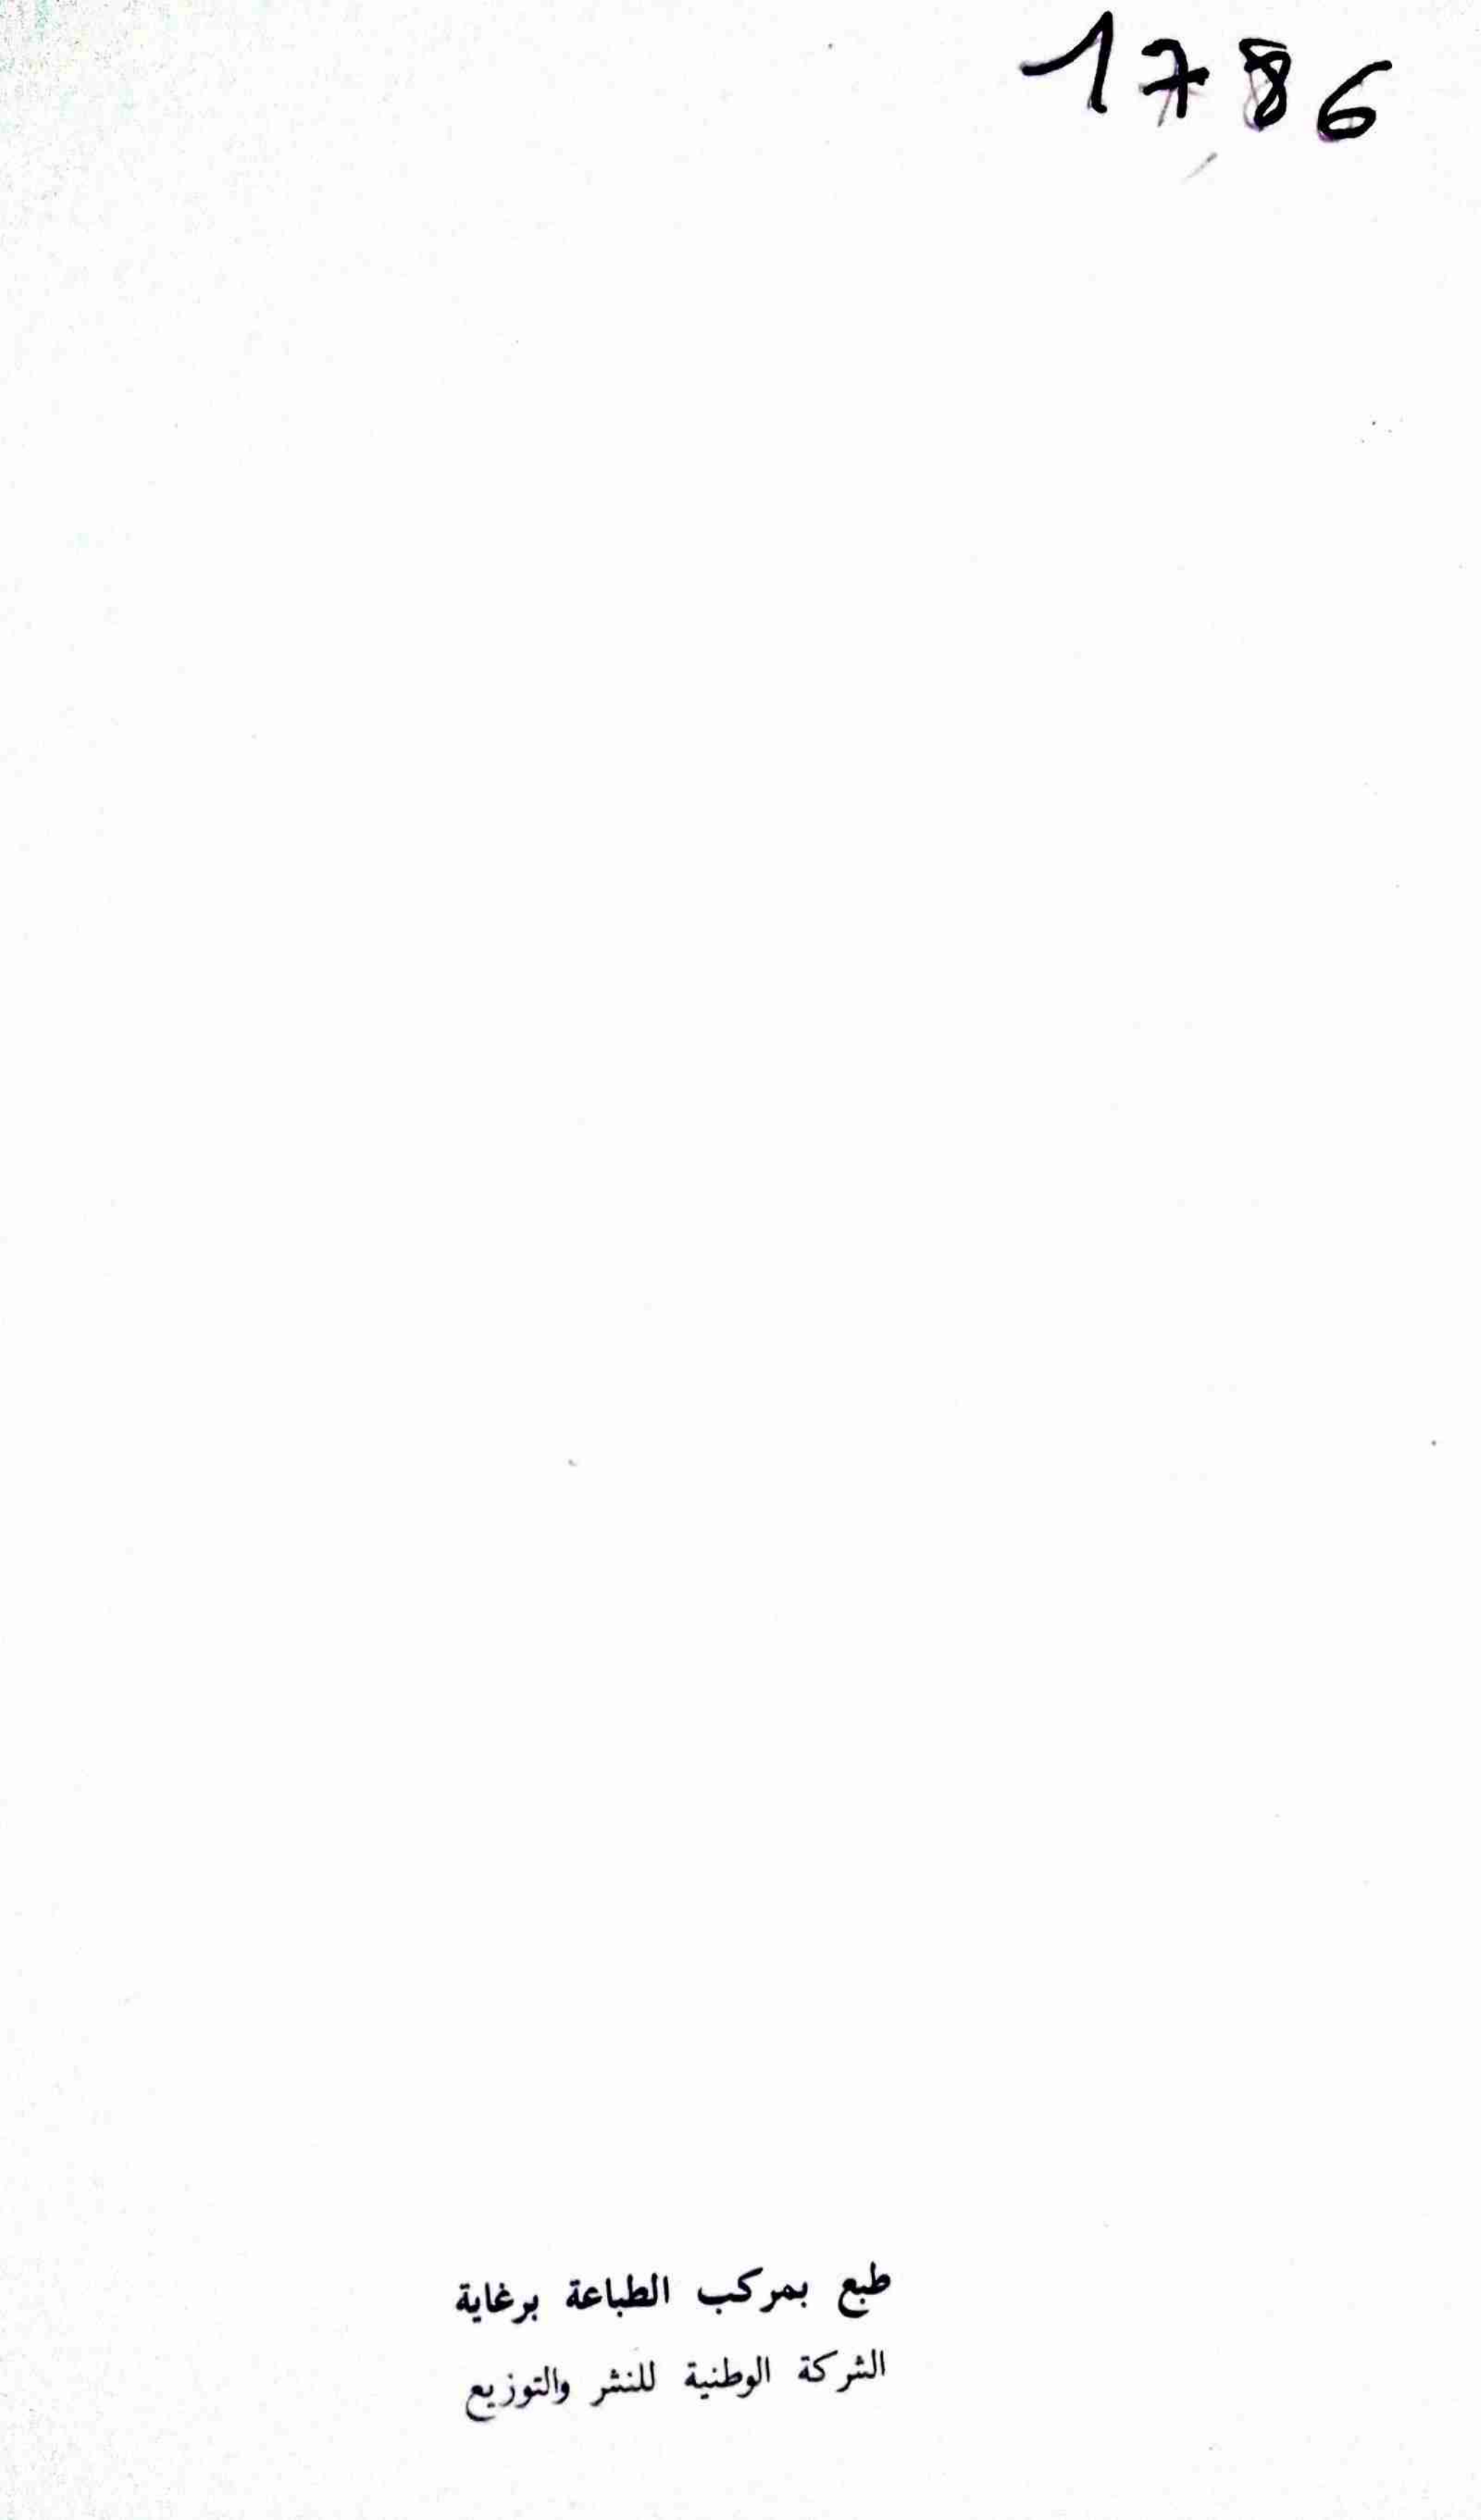 1786
طبع بمركب الطباعة برغاية
الشركة الوطنية للنشر والتوزيع